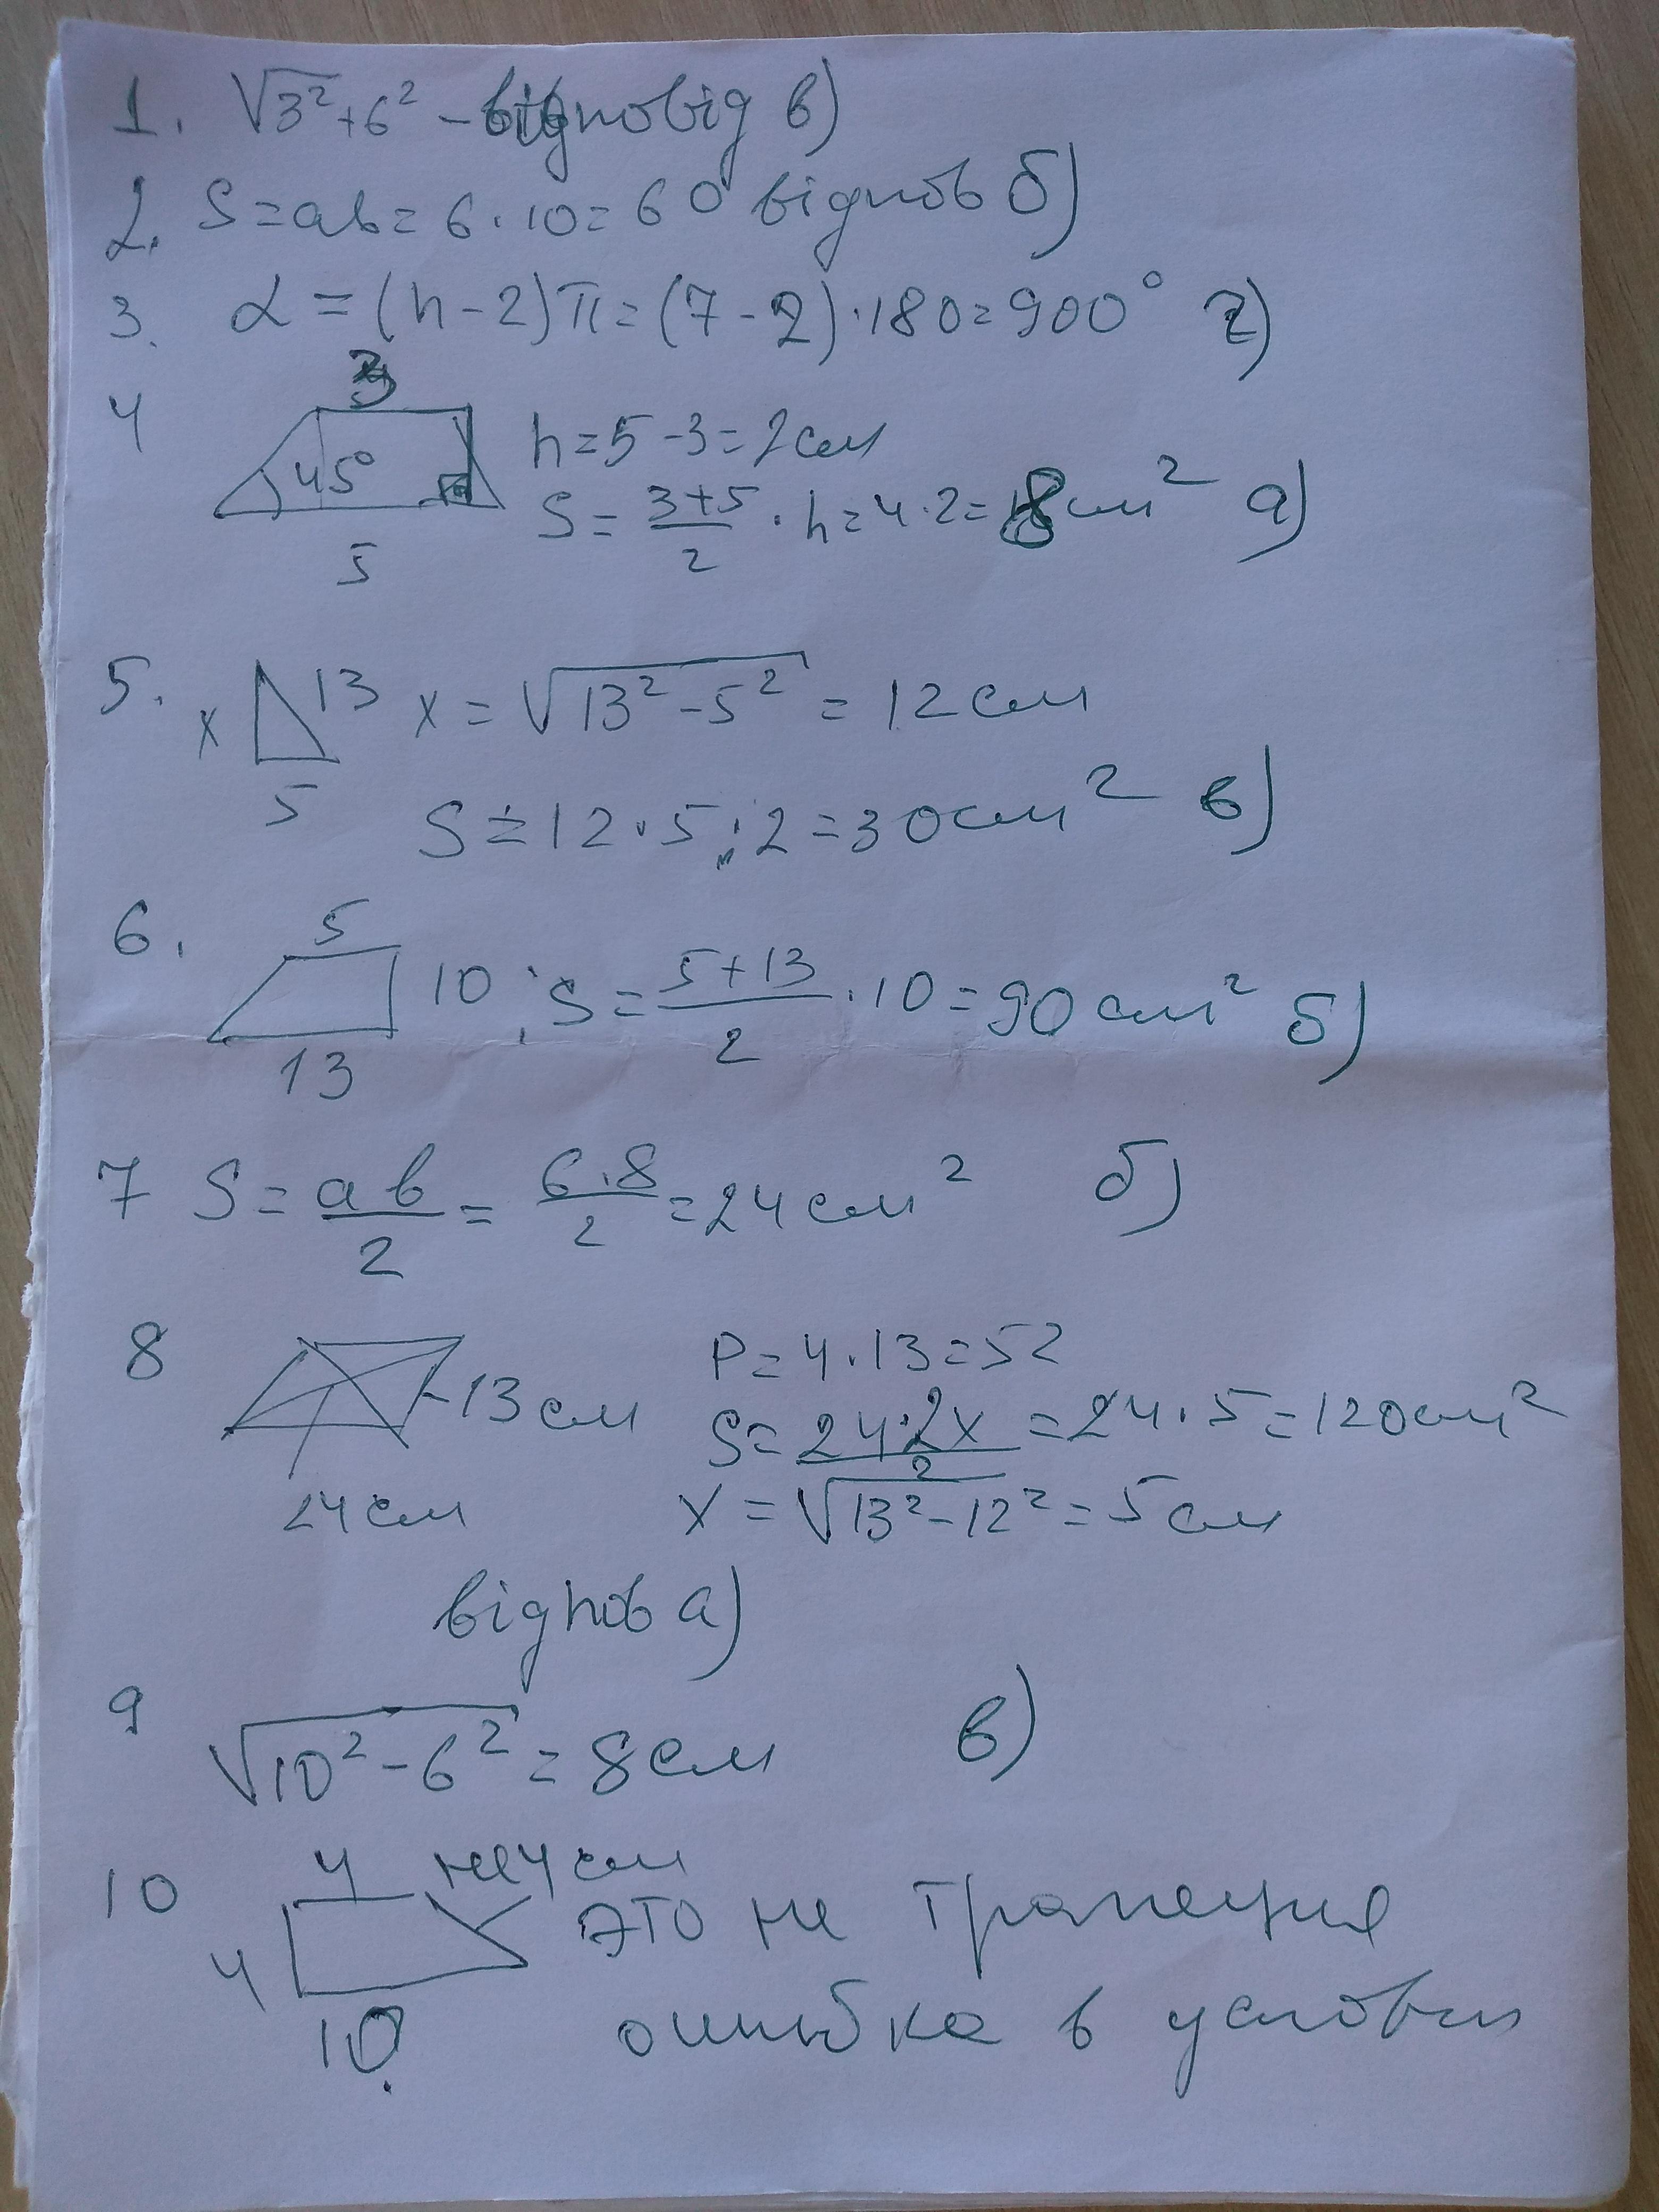 1. √3²+6² - відповідь в)
2. S=ab=6·10=60 відпов б)
3. α=(n-2)π=(7-2)·180=900° г)
4
3
45°
5
h=5-3=2см
S=3+5/2·h=4·2=8см² а)
5. x 13 5 x=√13²-5²=12см
S=12·5:2=30см² в)
6. 5 10 13 S=5+13/2·10=90см² б)
7 S=ab/2=6·8/2=24см² б)
8 13см 24см P=4·13=52
S=24·2x/2=24·5=120см²
x=√13²-12²=5см
відпов а)
9 √10²-6²=8см в)
10 4 не 4см
4 это не трапеция
10 ошибка в условии